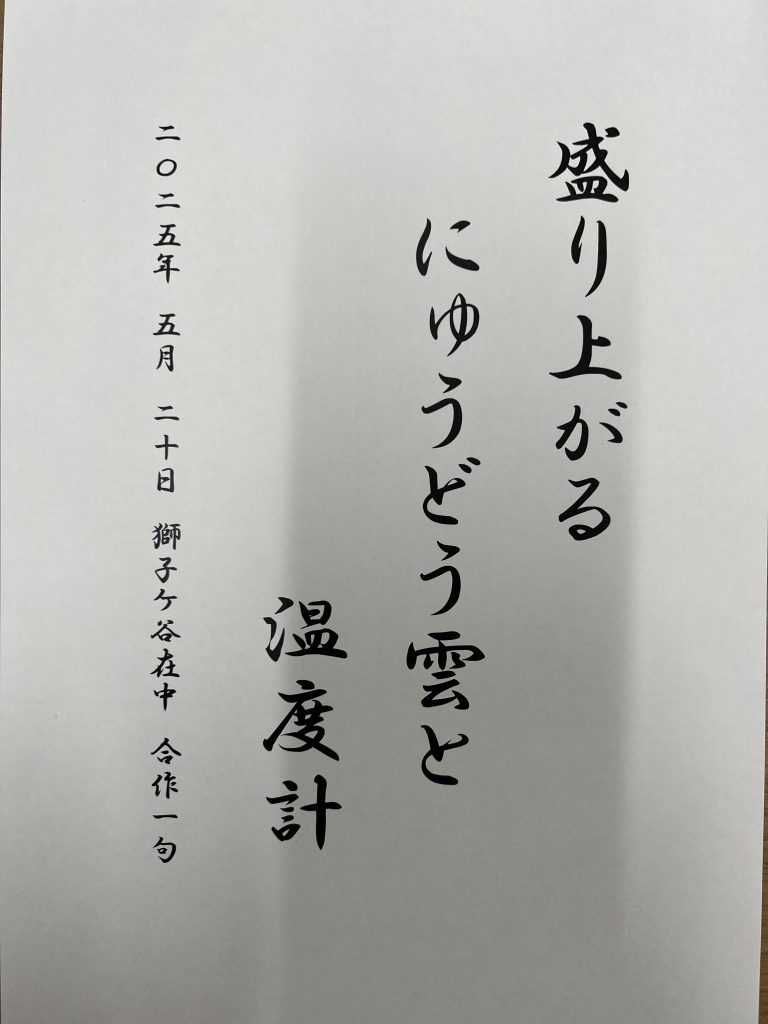 盛り上がる
にゅうどう雲と
温度計
二〇二五年 五月 二十日 獅子ケ谷在中 合作一句